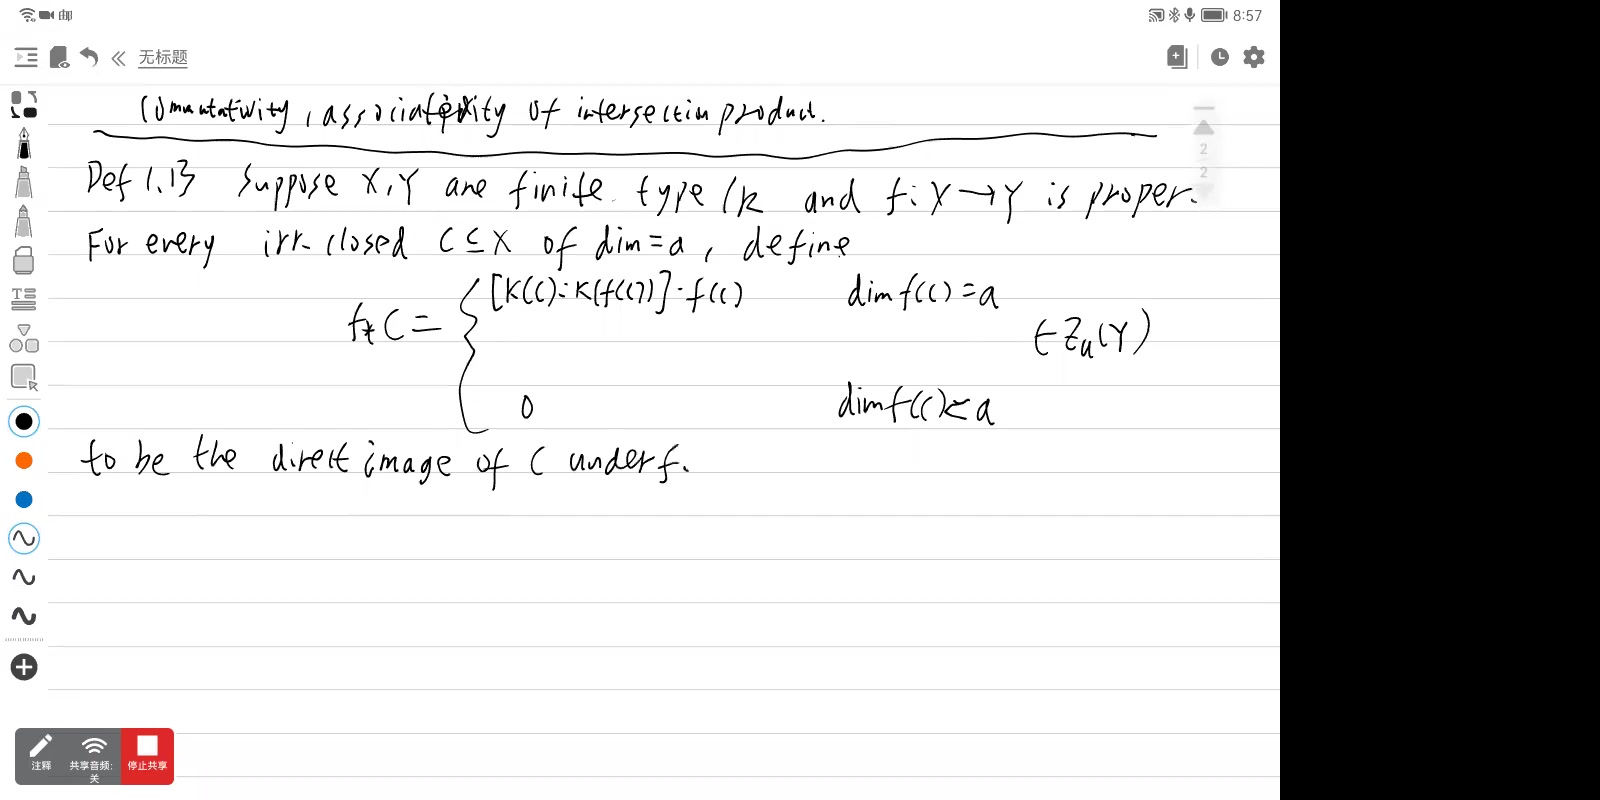 8:57
无标题
Commutativity, associativity of intersection product.
2
Def 1.13 Suppose X,Y are finite type/k and f:X→Y is proper.
2
For every irr. closed C⊆X of dim=a, define
[K(C):K(f(C))]·f(C) dim f(C)=a
f*C = { ∈ Za(Y)
0 dim f(C)<a
to be the direct image of C under f.
注释 共享音频:关 停止共享